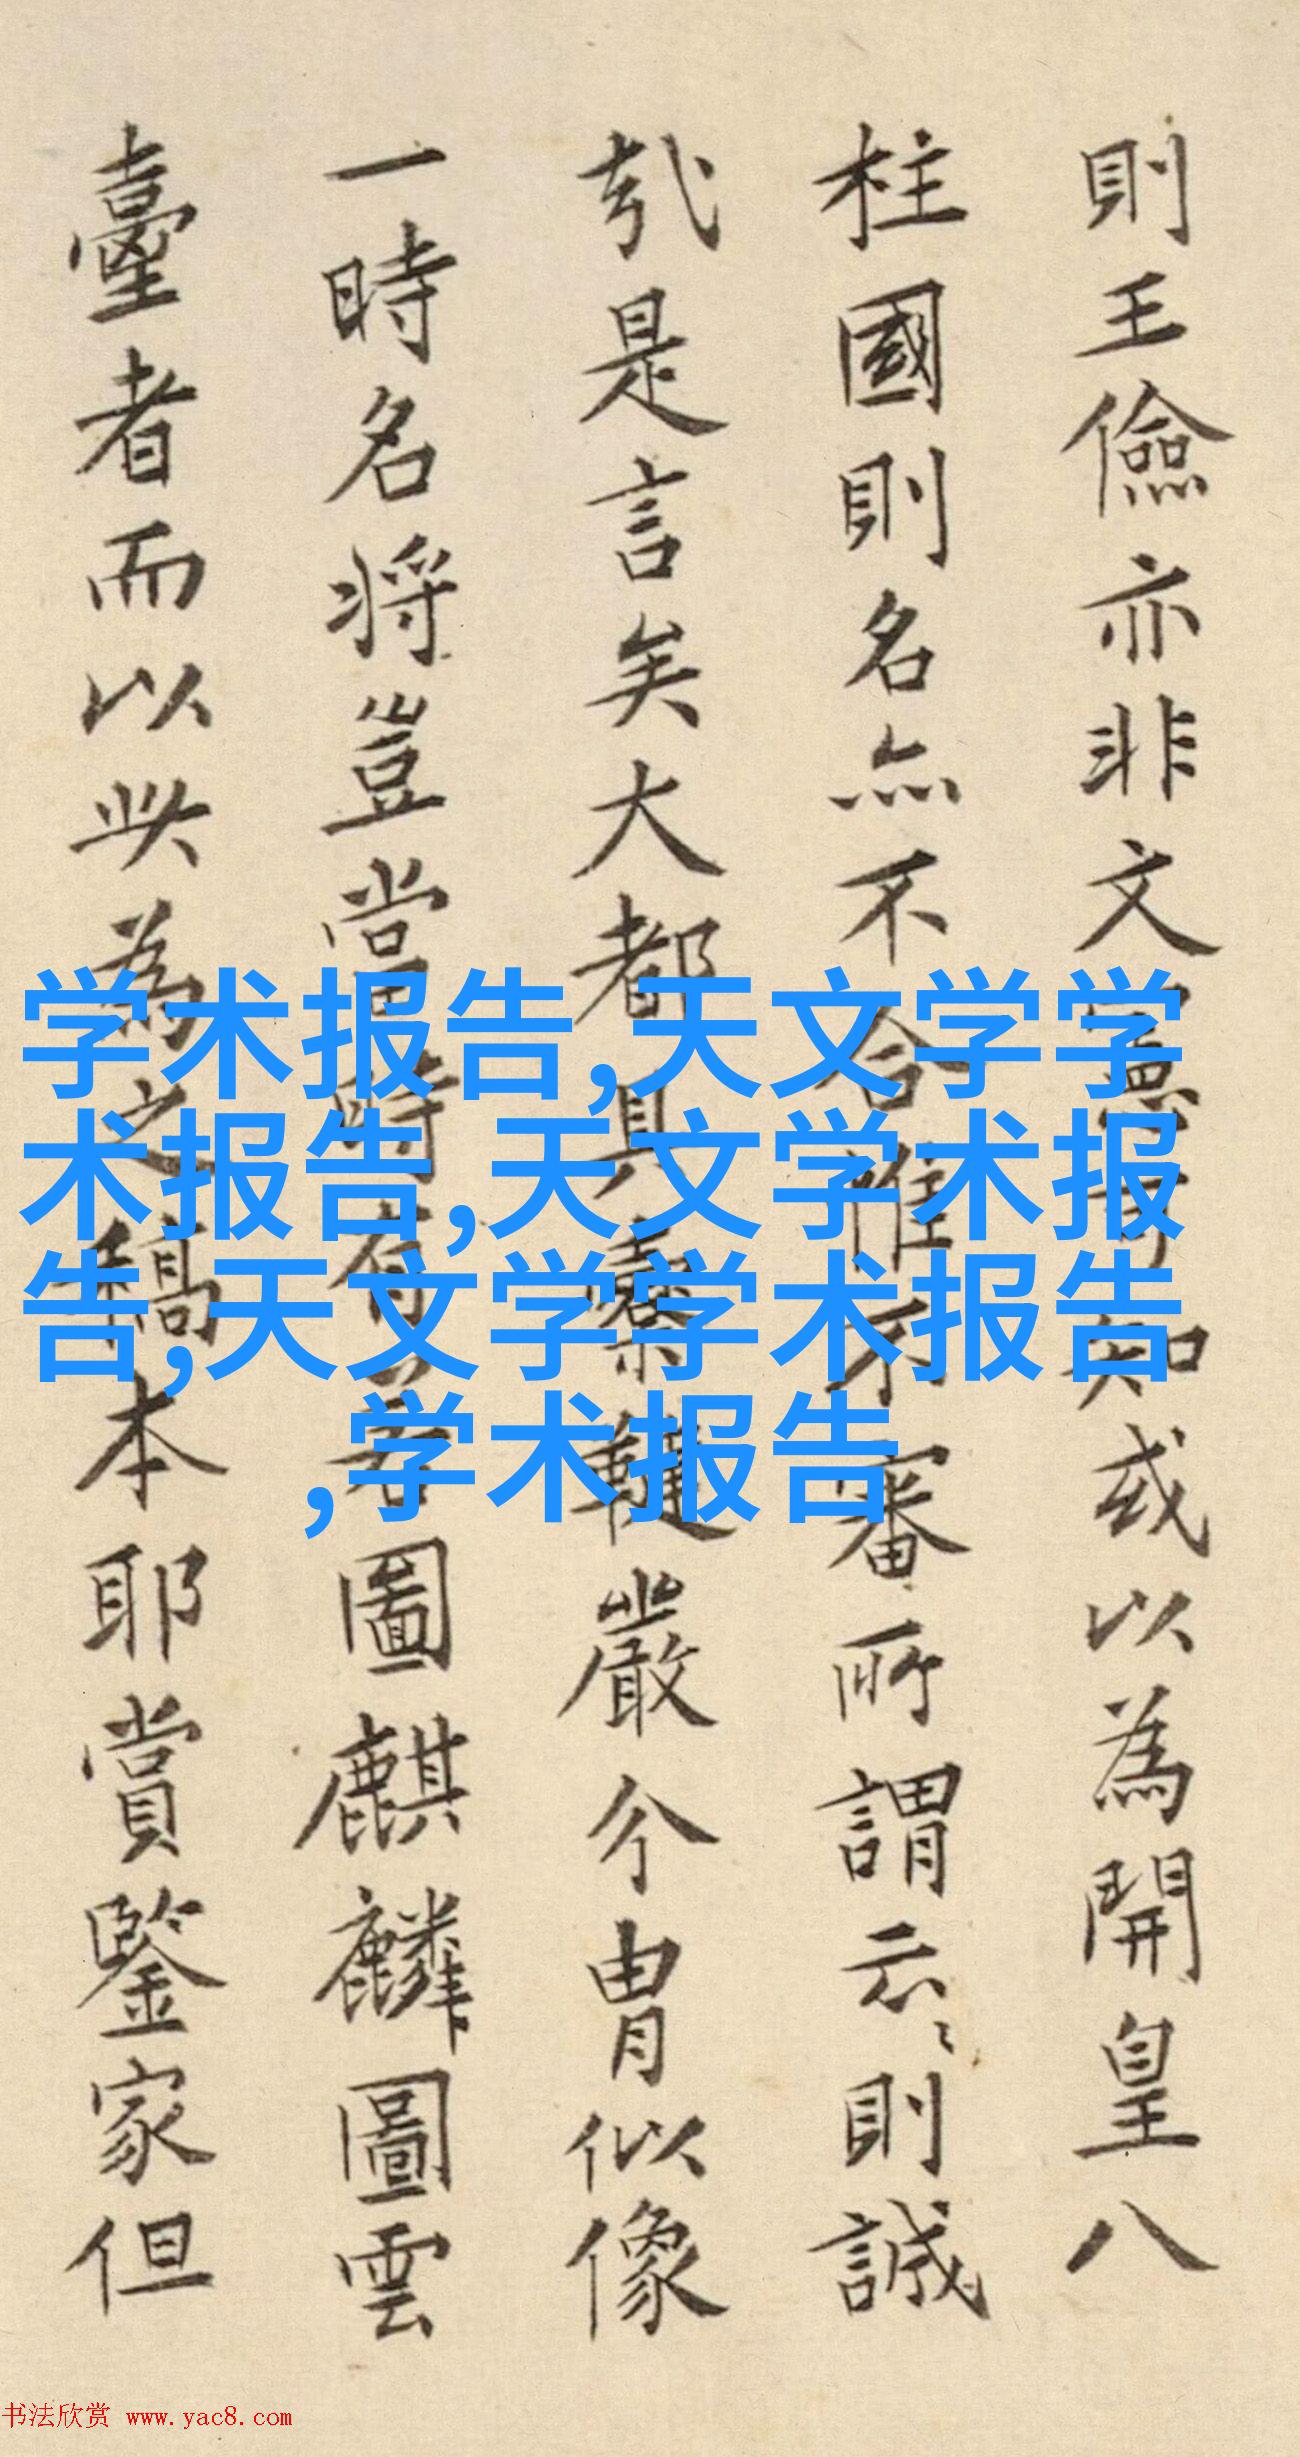 則王儉亦非文憲可知或以為開皇八
柱國則名亦不合惟不審所謂云〻則誠
哉是言矣大都具櫜鞬嚴介冑似像
一時名将豈當時有若圖麒麟圖雲
臺者而以此為之稿本耶賞鑒家但
学术报告,天文学学
术报告,天文学术报
告,天文学学术报告
,学术报告
书法欣赏 www.yac8.com